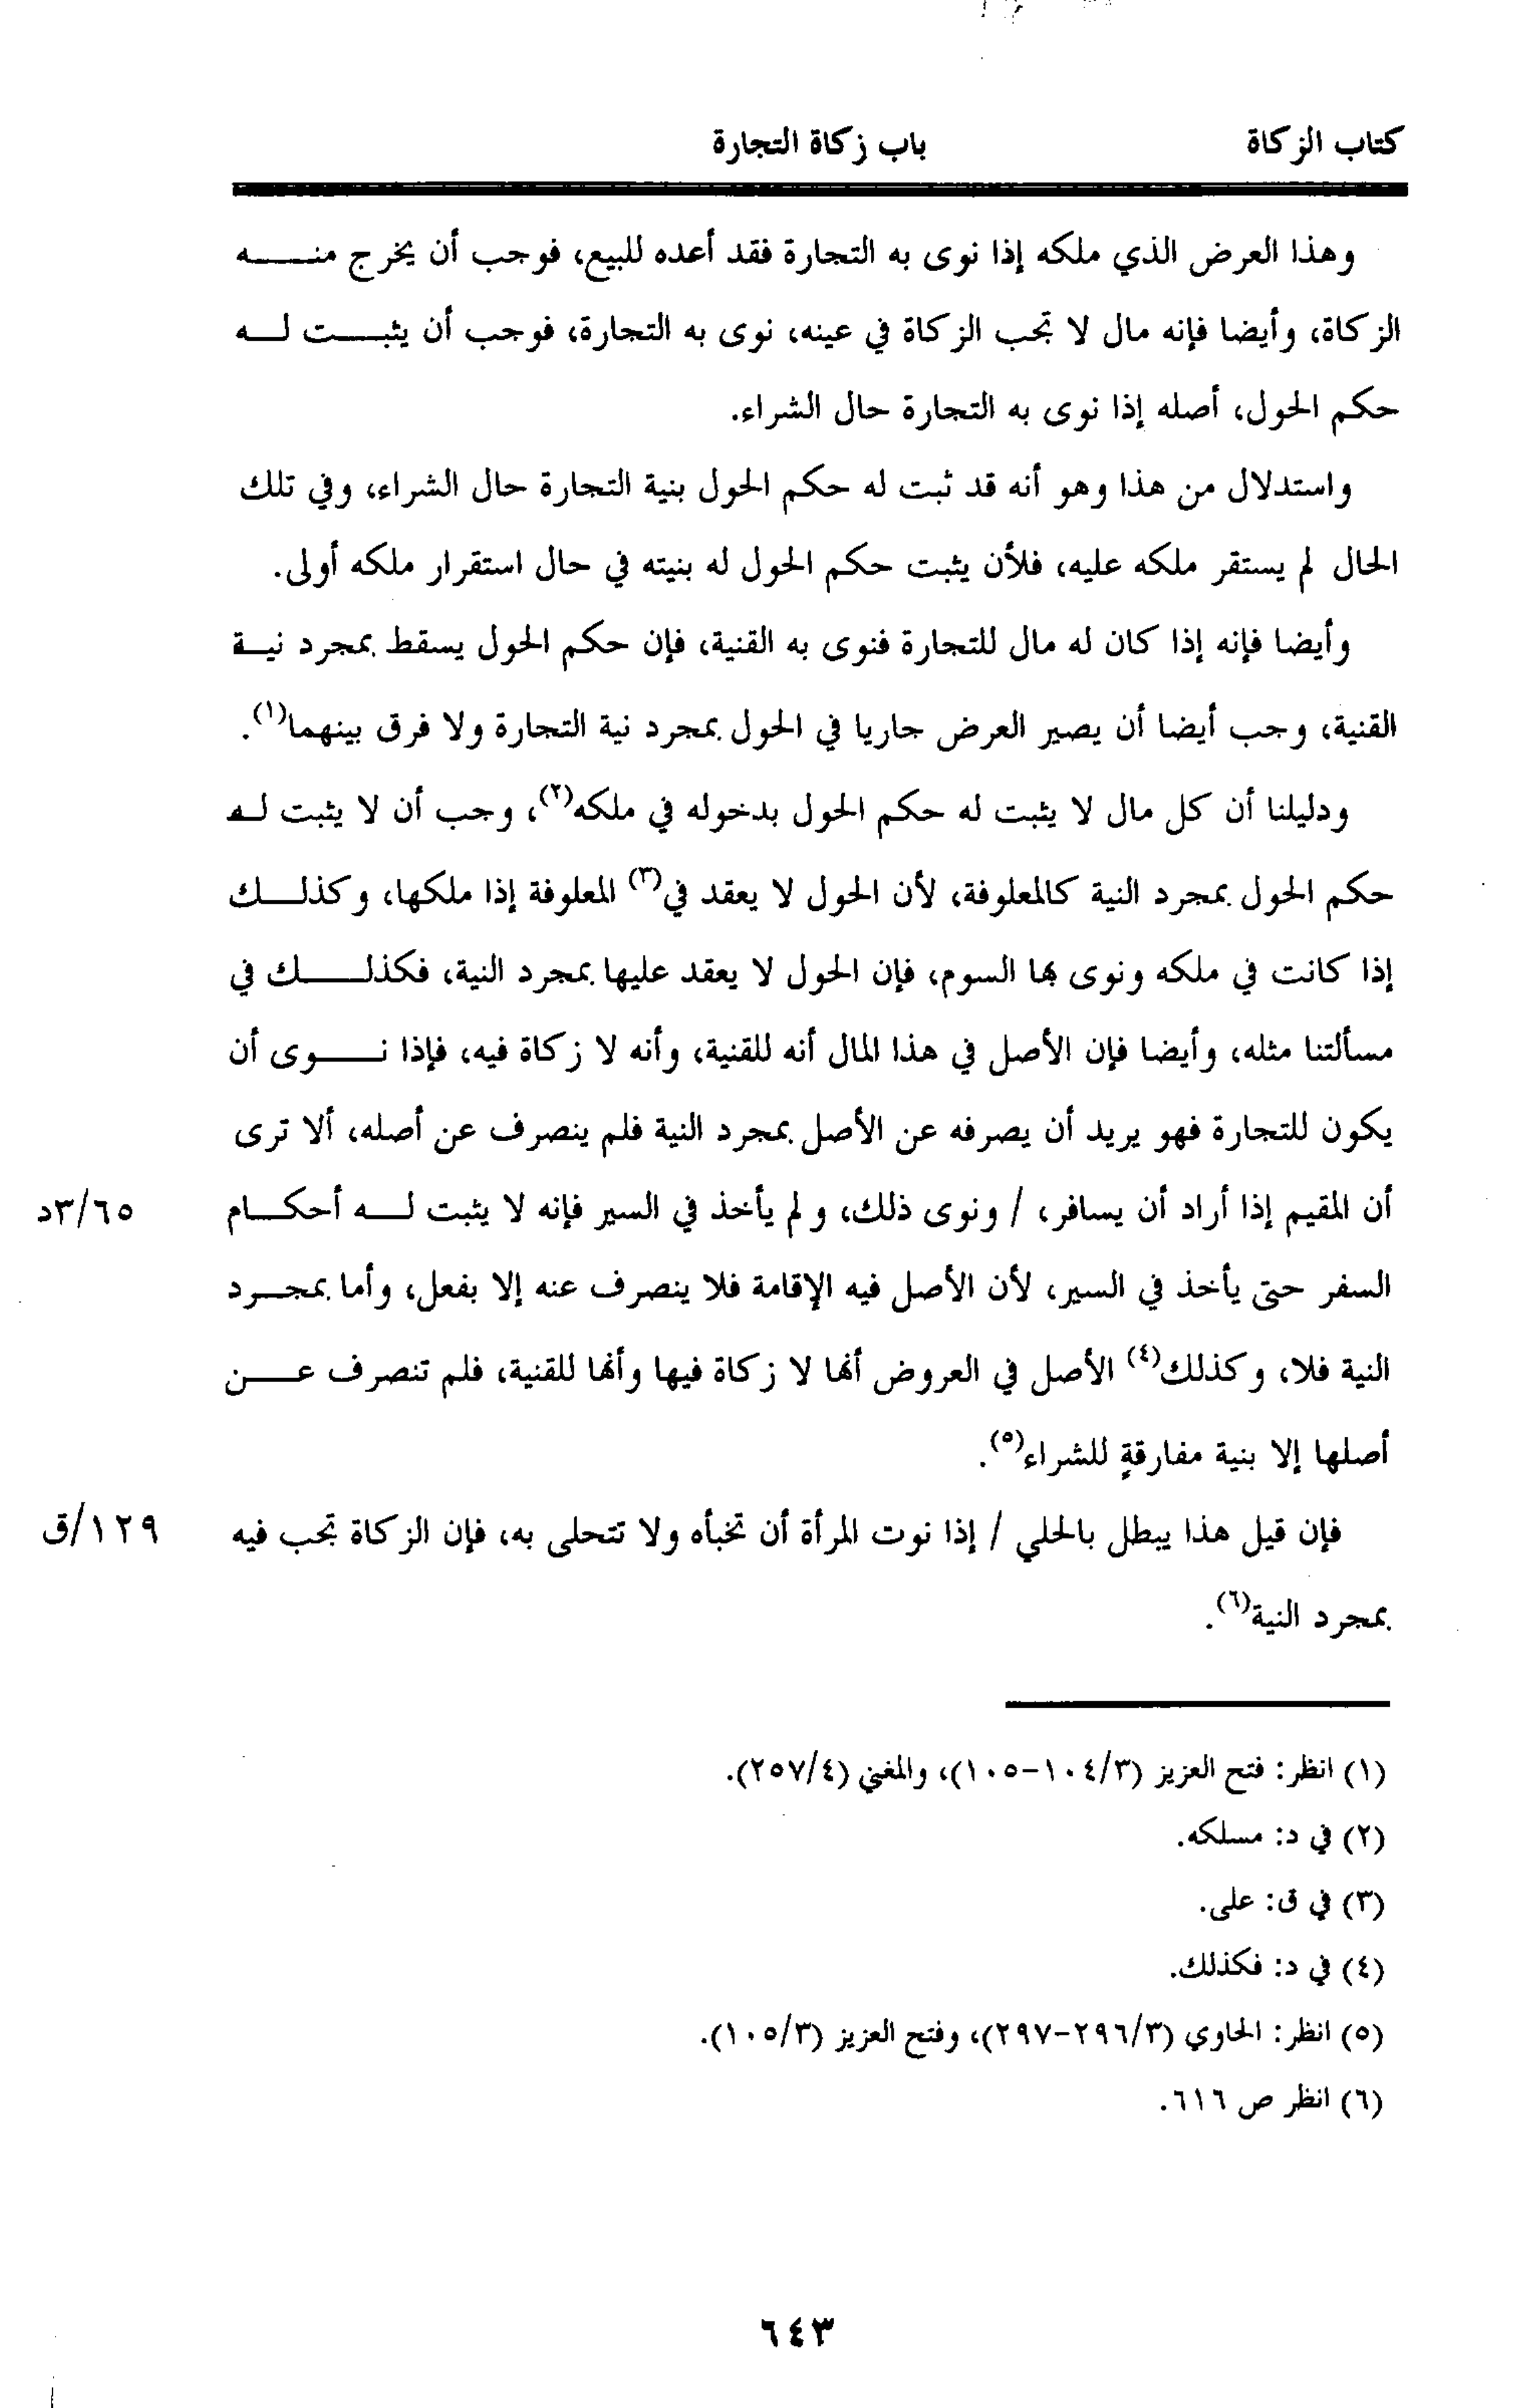 كتاب الزكاة باب زكاة التجارة
وهذا العرض الذي ملكه إذا نوى به التجارة فقد أعده للبيع، فوجب أن يخرج منه
الزكاة، وأيضا فإنه مال لا تجب الزكاة في عينه، نوى به التجارة، فوجب أن يثبت له
حكم الحول، أصله إذا نوى به التجارة حال الشراء.
واستدلال من هذا وهو أنه قد ثبت له حكم الحول بنية التجارة حال الشراء، وفي تلك
الحال لم يستقر ملكه عليه، فلأن يثبت حكم الحول له بنيته في حال استقرار ملكه أولى.
وأيضا فإنه إذا كان له مال للتجارة فنوى به القنية، فإن حكم الحول يسقط بمجرد نية
القنية، وجب أيضا أن يصير العرض جاريا في الحول بمجرد نية التجارة ولا فرق بينهما(١).
ودليلنا أن كل مال لا يثبت له حكم الحول بدخوله في ملكه(٢)، وجب أن لا يثبت له
حكم الحول بمجرد النية كالمعلوفة، لأن الحول لا يعقد في(٣) المعلوفة إذا ملكها، وكذلك
إذا كانت في ملكه ونوى بها السوم، فإن الحول لا يعقد عليها بمجرد النية، فكذلك في
مسألتنا مثله، وأيضا فإن الأصل في هذا المال أنه للقنية، وأنه لا زكاة فيه، فإذا نوى أن
يكون للتجارة فهو يريد أن يصرفه عن الأصل بمجرد النية فلم ينصرف عن أصله، ألا ترى
أن المقيم إذا أراد أن يسافر، / ونوى ذلك، ولم يأخذ في السير فإنه لا يثبت له أحكام ٣/٦٥د
السفر حتى يأخذ في السير، لأن الأصل فيه الإقامة فلا ينصرف عنه إلا بفعل، وأما بمجرد
النية فلا، وكذلك(٤) الأصل في العروض أنها لا زكاة فيها وأنها للقنية، فلم تنصرف عن
أصلها إلا بنية مفارقةٍ للشراء(٥).
فإن قيل هذا يبطل بالحلي / إذا نوت المرأة أن تخبأه ولا تتحلى به، فإن الزكاة تجب فيه ١٢٩/ق
بمجرد النية(٦).
(١) انظر: فتح العزيز (٣/١٠٤-١٠٥)، والمغني (٤/٢٥٧).
(٢) في د: مسلكه.
(٣) في ق: على.
(٤) في د: فكذلك.
(٥) انظر: الحاوي (٣/٢٩٦-٢٩٧)، وفتح العزيز (٣/١٠٥).
(٦) انظر ص ٦١٦.
٦٤٣